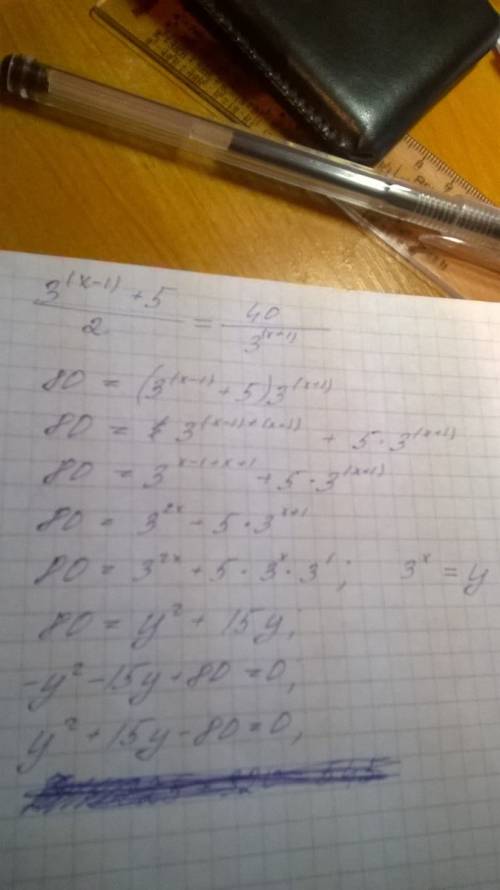 (3^(x-1) + 5)/2 = 40/3^(x+1)
80 = (3^(x-1) + 5)3^(x+1)
80 = 3^(x-1)+(x+1) + 5·3^(x+1)
80 = 3^x-1+x+1 + 5·3^(x+1)
80 = 3^2x - 5·3^x+1
80 = 3^2x + 5·3^x·3^1; 3^x = y
80 = y² + 15y;
-y² - 15y + 80 = 0;
y² + 15y - 80 = 0;